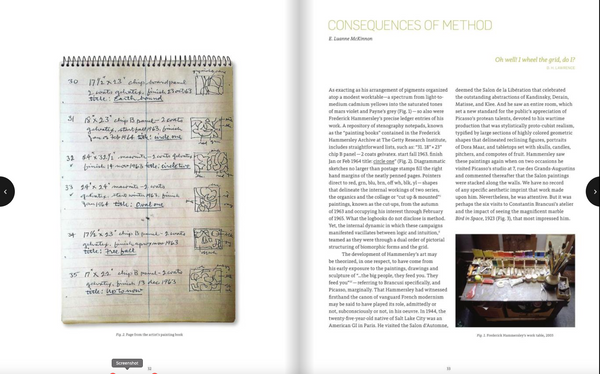 30 17½" x 23" chip board panel
2 coats gelvatex, finish 23 oct 63
title: Earth bound
31 18" x 23" chip B panel – 2 coats
gelvatex, start fall 1963. finish
jan or feb 1964 title: circle one
32 2 coats
gelvatex, finish 1963 title: circle two
33 24" x 24" masonite – 2 coats
gelvatex
jan 1964 title: Dual one
34 17½ x 23" chip B panel – 2 coats
gelvatex, finish 1963
title: free fall
35 17" x 22" chip B panel – 2 coats
gelvatex, finish 13 dec 1963
title: Up to now
Fig. 2. Page from the artist's painting book
Screenshot
CONSEQUENCES OF METHOD
E. Luanne McKinnon
Oh well! I wheel the grid, do I?
D. H. LAWRENCE
As exacting as his arrangement of pigments organized
atop a modest worktable—a spectrum from light-to-
medium cadmium yellows into the saturated tones
of mars violet and Payne's grey (Fig. 1)—so were
Frederick Hammersley's precise ledger entries of his
work. A repository of stenography notepads, known
as the "painting books" contained in the Frederick
Hammersley Archive at The Getty Research Institute,
includes straightforward lists, such as: "31. 18" x 23"
chip B panel—2 coats gelvatex, start fall 1963. finish
Jan or Feb 1964 title: circle one" (Fig. 2). Diagrammatic
sketches no larger than postage stamps fill the right
hand margins of the neatly penned pages. Pointers
direct to red, grn, blu, brn, off wh, blk, yl—shapes
that delineate the internal workings of two series,
the organics and the collage or "cut up & mounted"
paintings, known as the cut-ups, from the autumn
of 1963 and occupying his interest through February
of 1965. What the logbooks do not disclose is method.
Yet, the internal dynamic in which these campaigns
manifested vacillates between logic and intuition,
teamed as they were through a dual order of pictorial
structuring of biomorphic forms and the grid.
The development of Hammersley's art may
be theorized, in one respect, to have come from
his early exposure to the paintings, drawings and
sculpture of "...the big people, they feed you. They
feed you"—referring to Brancusi specifically, and
Picasso, marginally. That Hammersley had witnessed
firsthand the canon of vanguard French modernism
may be said to have played its role, admittedly or
not, subconsciously or not, in his oeuvre. In 1944, the
twenty-five-year-old native of Salt Lake City was an
American GI in Paris. He visited the Salon d'Automne,
deemed the Salon de la Libération that celebrated
the outstanding abstractions of Kandinsky, Derain,
Matisse, and Klee. And he saw an entire room, which
set a new standard for the public's appreciation of
Picasso's protean talents, devoted to his wartime
production that was stylistically proto-cubist realism,
typified by large sections of highly colored geometric
shapes that delineated reclining figures, portraits
of Dora Maar, and tabletops set with skulls, candles,
pitchers, and computes of fruit. Hammersley saw
these paintings again when on two occasions he
visited Picasso's studio at 7, rue des Grands-Augustins
and commented thereafter that the Salon paintings
were stacked along the walls. We have no record
of any specific aesthetic imprint that work made
upon him. Nevertheless, he was attentive. But it was
perhaps the six visits to Constantin Brancusi's atelier
and the impact of seeing the magnificent marble
Bird in Space, 1923 (Fig. 3), that most impressed him.
Fig. 1. Frederick Hammersley's work table, 2009